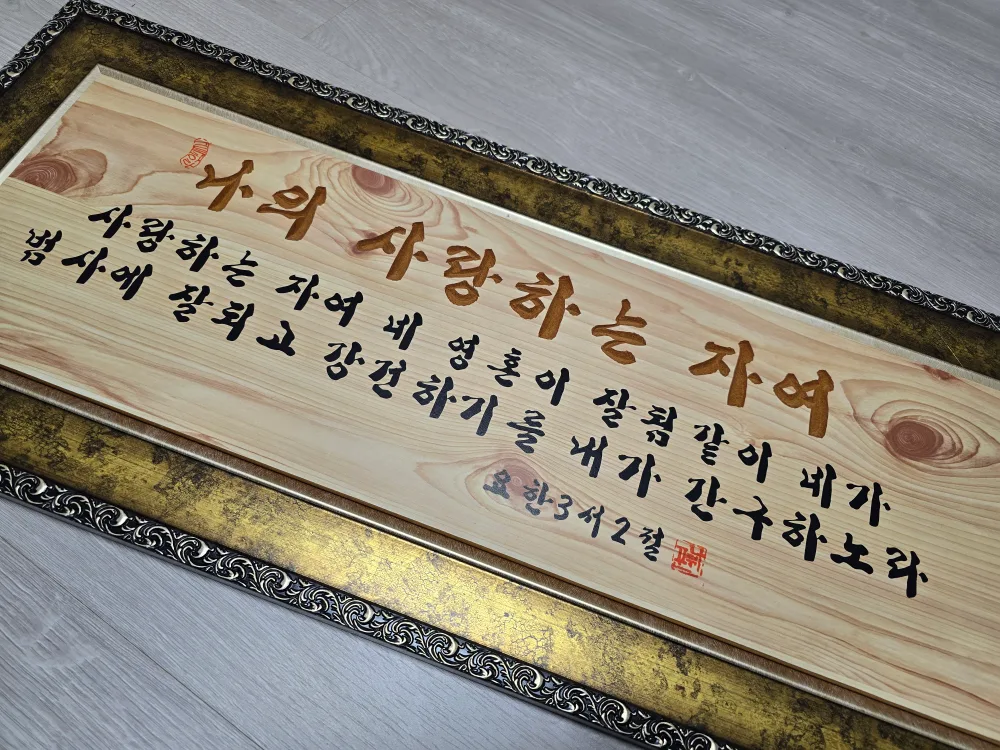 나의 사랑하는 자여
사랑하는 자여 네 영혼이 잘됨같이 네가
범사에 잘되고 강건하기를 내가 간구하노라
요한3서 2절